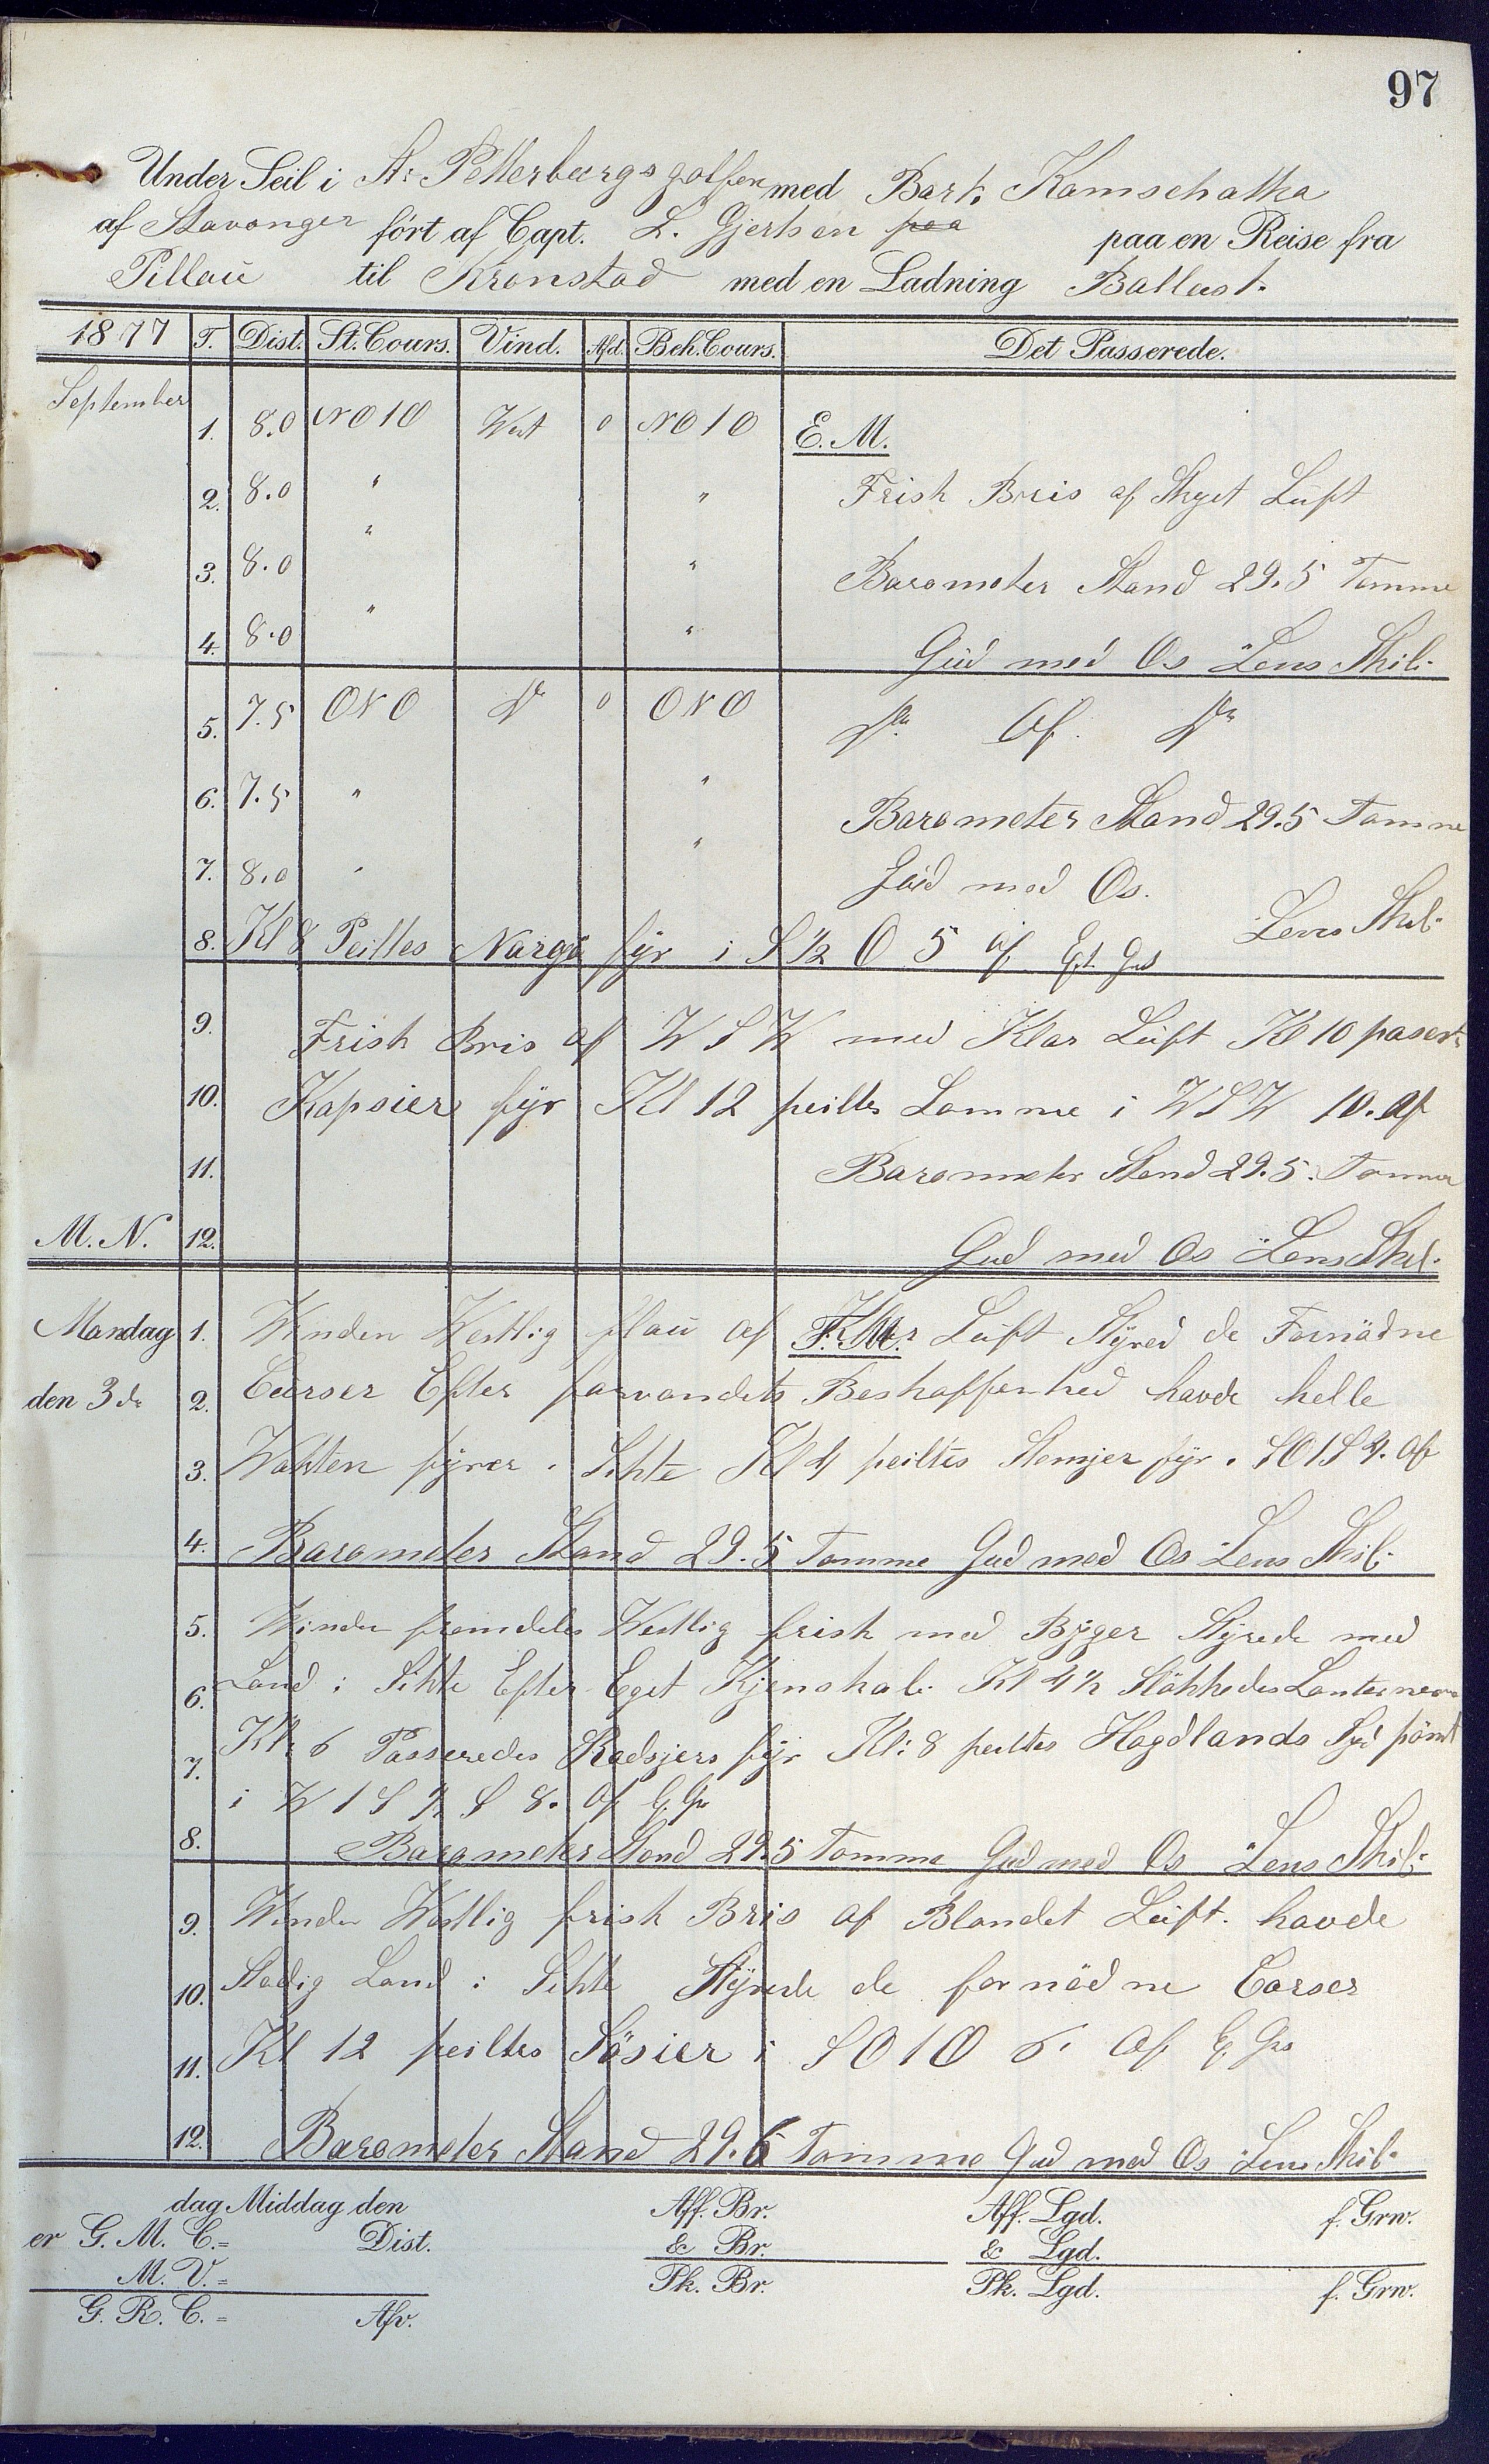 97
Under Seil i St: Petterburgs golfen med Bark. Kamschatka
af Stavanger fört af Capt. L. Gjertsen paa paa en Reise fra
Pillau til Kronstad med en Ladning Ballast.
1877 T. Dist. St. Cours. Vind. Afd. Beh. Cours. Det Passerede.
September
1. 8.0 NO10 West 0 NO10 E. M.
2. 8.0 " " Frisk Bris af Skyet Luft
3. 8.0 " " Barometer Stand 29.5 Tomme
4. 8.0 " " Gud med Os Lens Skib.
5. 7.5 ONO Do 0 ONO Do Af Do
6. 7.5 " " Barometer Stand 29.5 Tomme
7. 8.0 " " Gud med Os.
Lens Skib
8. Kl 8 Peiltes Nargö fyr i S ½ O 5 af
9. Frisk Bris af WSW med Klar Luft Kl 10 pasert
10. Kapsier fyr Kl 12 peiltes Lamme i WSW 10. af
11. Barometer Stand 29.5. Tomme
M. N. 12. Gud med Os Lens Skib.
Mandag 1. Vinden Westlig flau af F. M. Klar Luft Styred de Fornödne
den 3de 2. Curser Efter farvandets Beskaffenhed havde helle
3. Wakten fyrer i Sikte Kl 4 peiltes fyr i SO1S 4. af
4. Barometer Stand 29.5 Tomme Gud med Os Lens Skib.
5. Vinden fremdeles Westlig frisk med Byger Styrede med
6. Land i Sikte Efter Eget Kjenskab. Kl 4½ Slökkedes Lanternerne
7. Kl. 6 Passeredes Rodsjers fyr Kl: 8 peiltes Hogdlands Syd pönt
i W1S ½ S 8. af
8. Barometer Stand 29.5 Tomme Gud med Os Lens Skib.
9. Vinden Westlig frisk Bris af Blandet Luft. havde
10. Stadig Land i Sikte Styrede de fornödne Corser
11. Kl 12 peiltes Sösier i SO1O 6. af
12. Barometer Stand 29.6 Tomme Gud med Os Lens Skib.
dag Middag den Aff. Br. Aff. Lgd. f. Grw.
er G. M. C.= Dist. & Br. & Lgd.
M. V.= Pk. Br. Pk. Lgd. f. Grw.
G. R. C.= Afv.